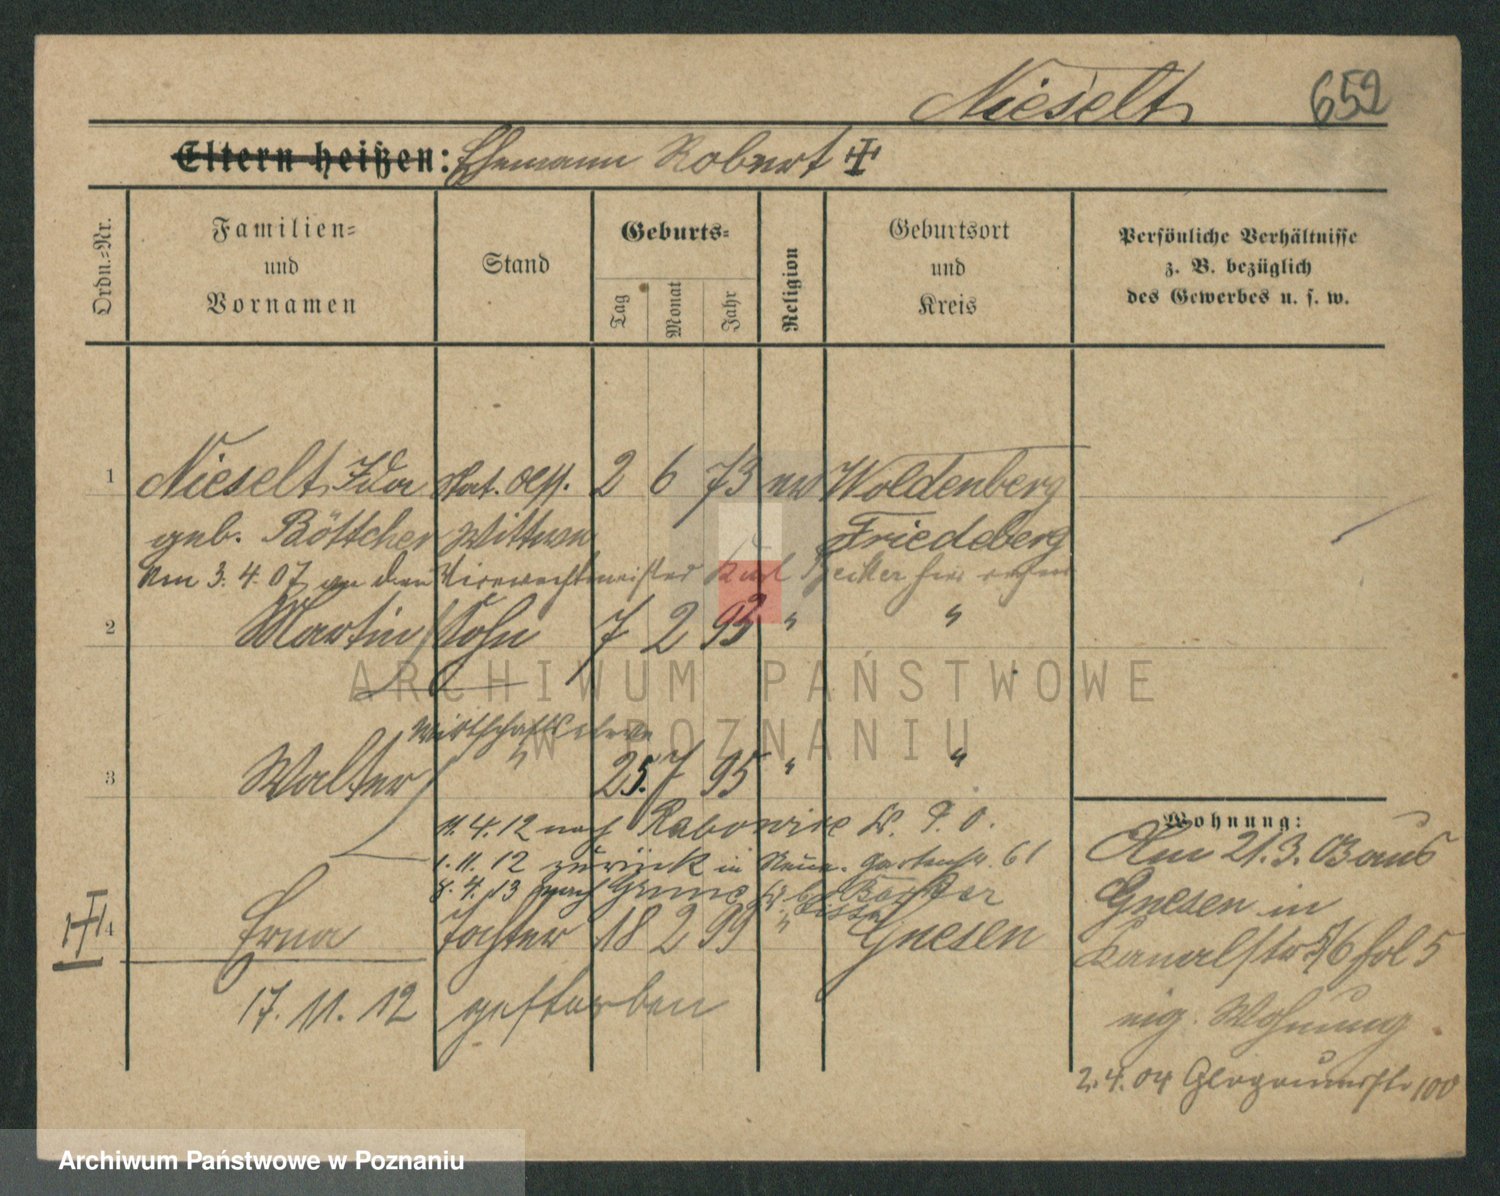 Nieselt 652
Eltern heißen: Ehemann Robert
Ordn.=Nr.
Familien=
und
Vornamen
Stand
Geburts=
Tag
Monat
Jahr
Religion
Geburtsort
und
Kreis
Persönliche Verhältnisse
z. B. bezüglich
des Gewerbes u. s. w.
1 Nieselt Ida 2 6 73 Woldenberg
geb. Böttcher Wittwe Friedeberg
Am 3.4.07 an den Vicewachtmeister Karl
2 Martin Sohn 7 2 93 " "
Wirtschafts
3 Walter " 25. 7 95 " "
11.4.12 nach Rabowice P. O.
1.11.12 zurück in Gartenstr. 61
8.4.13 nach
4 Erna Tochter 18 2 99 " Gnesen
17.11.12 gestorben
Wohnung:
Am 21.3.03 aus
Gnesen in
Kanalstr 6 fol 5
eig. Wohnung
2.4.04 Glogauerstr 100
ARCHIWUM PAŃSTWOWE
W POZNANIU
Archiwum Państwowe w Poznaniu